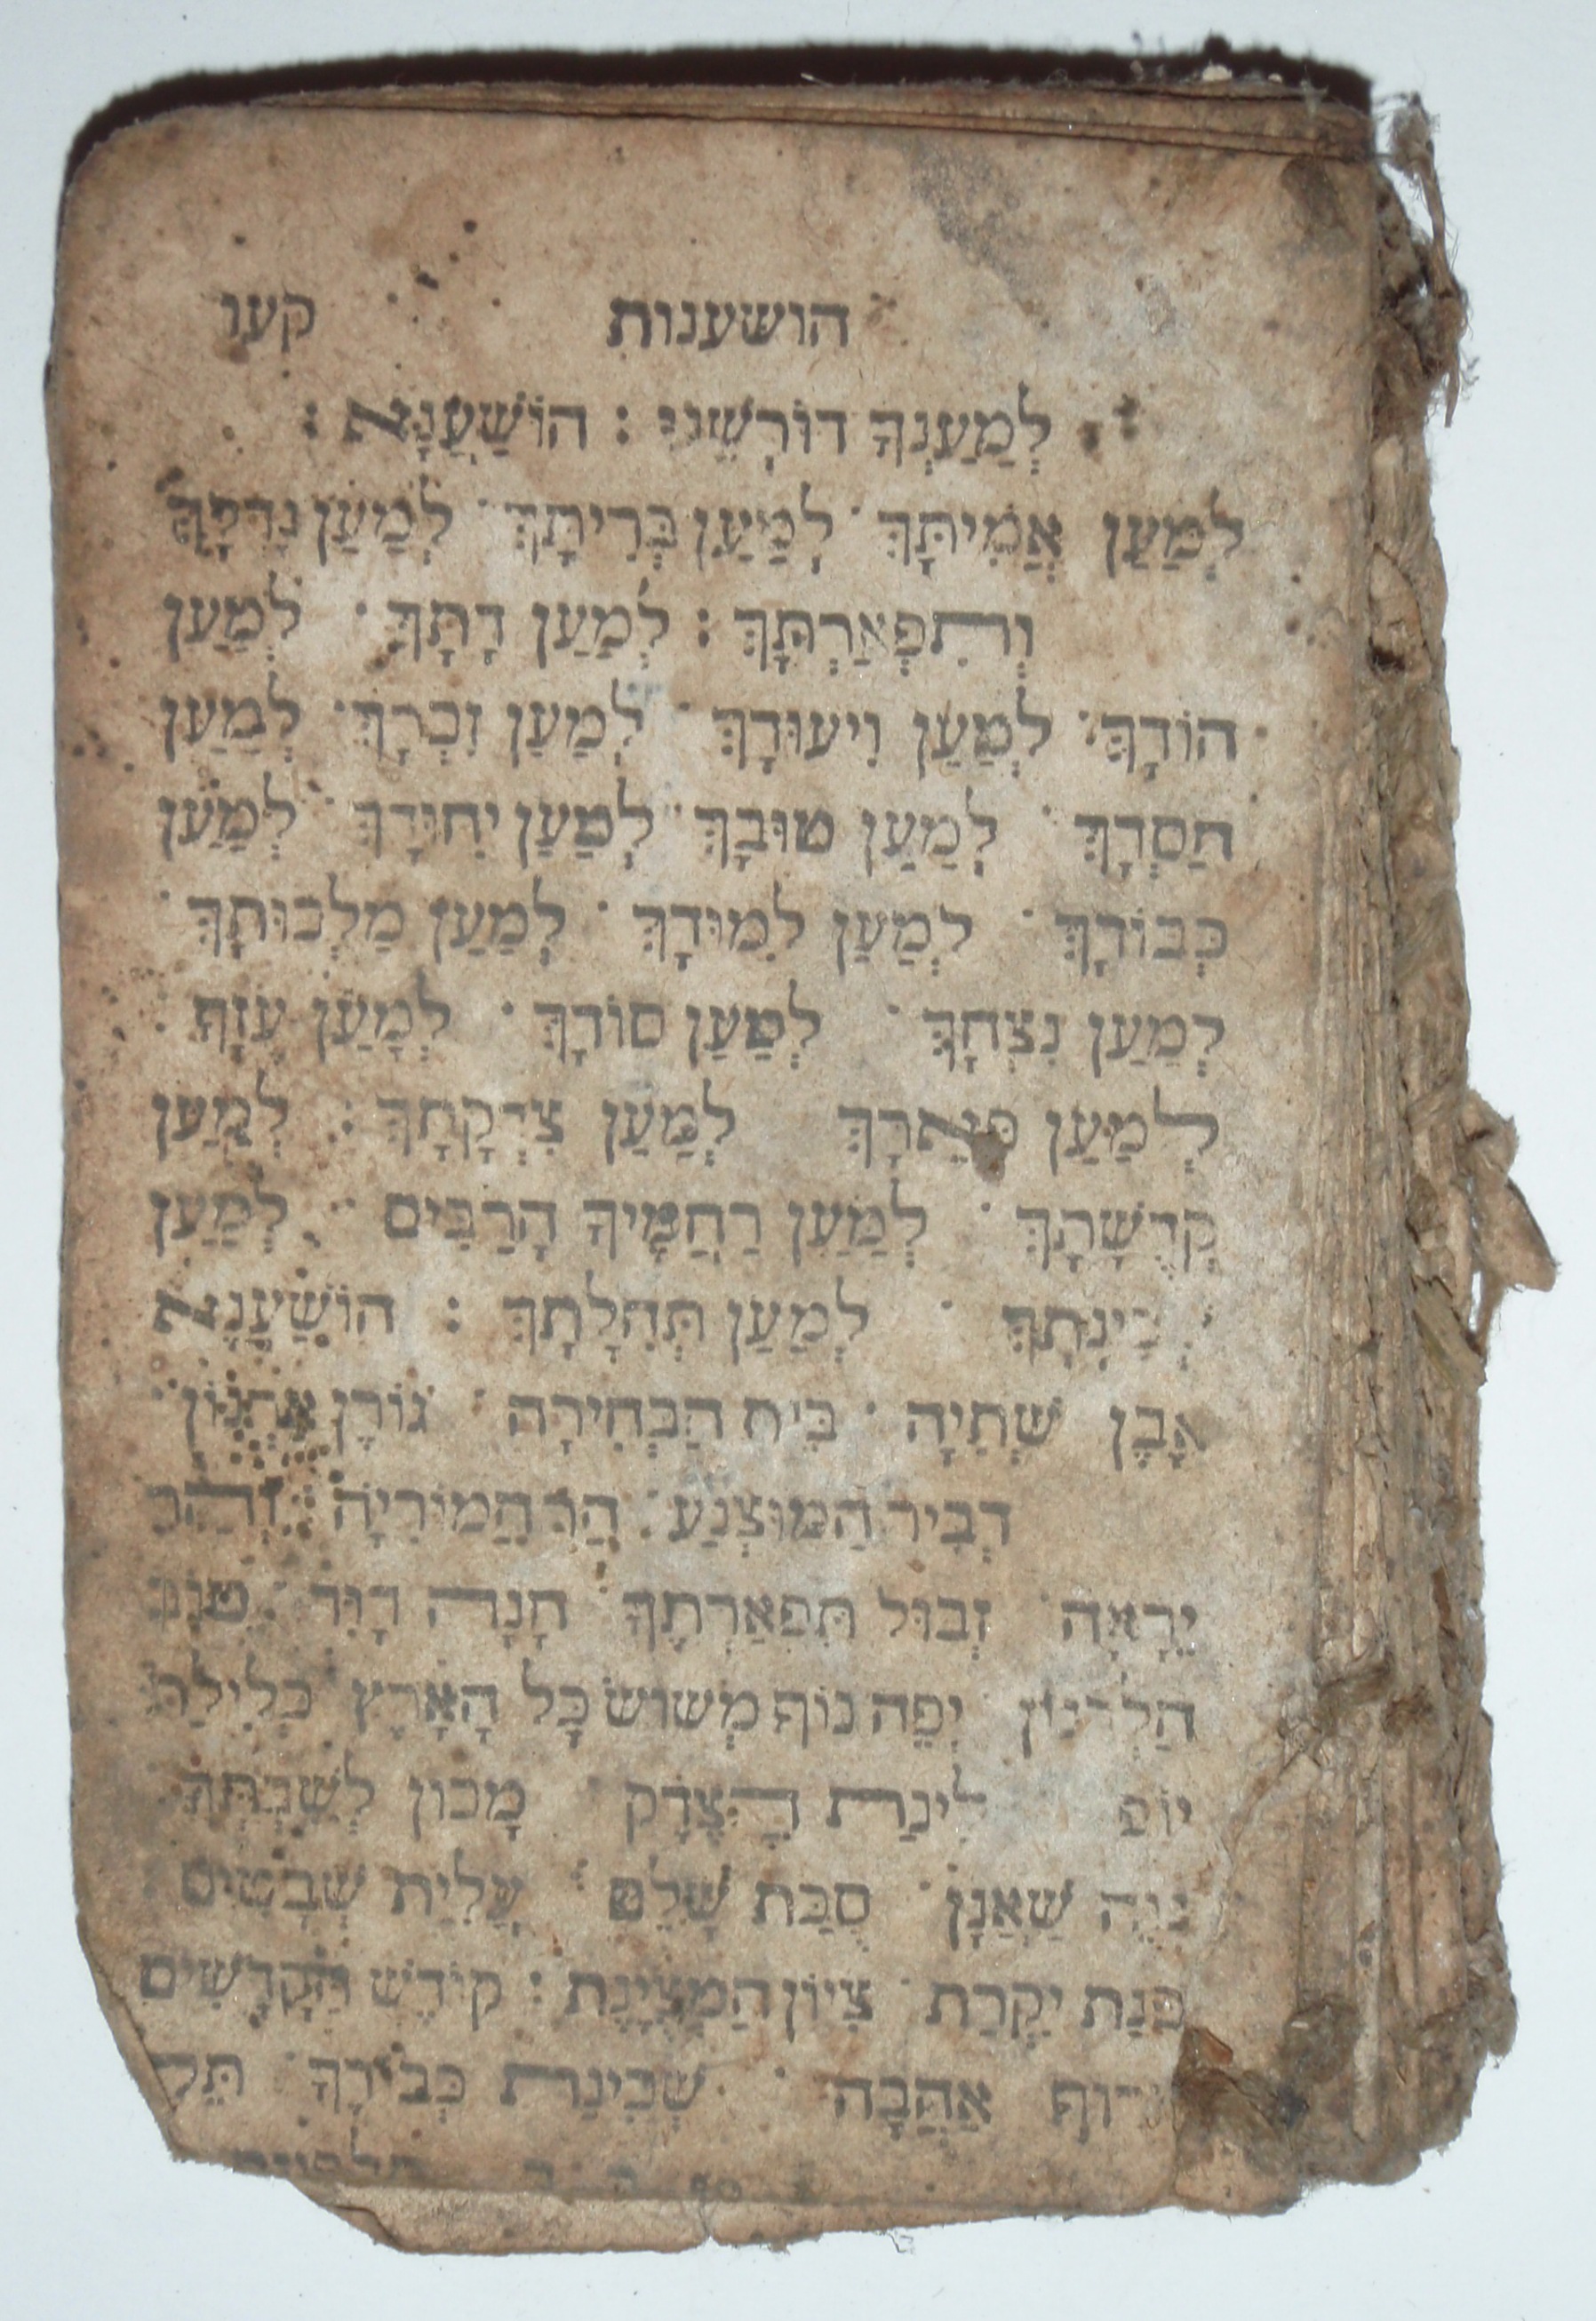 הושענות קעו
לְמַעַנְךָ דוֹרְשֵׁנוּ : הוֹשַׁעֲנָא :
לְמַעַן אֲמִיתָּךְ · לְמַעַן בְּרִיתָךְ · לְמַעַן גָדְלָךְ
וְתִפְאַרְתָּךְ : לְמַעַן דָתָּךְ · לְמַעַן
הוֹדָךְ · לְמַעַן וִיעוּדָךְ · לְמַעַן זִכְרָךְ · לְמַעַן
חַסְדָךְ · לְמַעַן טוּבָךְ · לְמַעַן יִחוּדָךְ · לְמַעַן
כְּבוֹדָךְ · לְמַעַן לִמוּדָךְ · לְמַעַן מַלְכוּתָךְ ·
לְמַעַן נִצְחָךְ · לְמַעַן סוֹדָךְ · לְמַעַן עֻזָךְ ·
לְמַעַן פְּאֵרָךְ לְמַעַן צִדְקָתָךְ : לְמַעַן
קְדֻשָׁתָךְ · לְמַעַן רַחֲמֶיךָ הָרַבִּים · לְמַעַן
שְׁכִינָתָךְ · לְמַעַן תְּהִלָתָךְ : הוֹשַׁעֲנָא
אֶבֶן שְׁתִיָה · בֵּית הַבְּחִירָה · גוֹרֶן אָרְנָן ·
דְבִיר הַמוּצְנַע · הַר הַמוֹרִיָה : וְהַר
יֵרָאֶה · זְבוּל תִּפְאַרְתֶּךָ · חָנָה דָוִד · טוֹב
הַלְבָנוֹן · יְפֵה נוֹף מְשׂוֹשׂ כָּל הָאָרֶץ · כְלִילַת
יוֹפִי לִינַת הַצֶּדֶק · מָכוֹן לְשִׁבְתֶּךָ ·
נָוֶה שַׁאֲנָן · סֻכַּת שָׁלֵם · עֲלִיַת שְׁבָטִים ·
פִּנַת יִקְרַת · צִיּוֹן הַמְצֻיֶנֶת : קוֹדֶשׁ הַקֳדָשִׁים
רָצוּף אַהֲבָה · שְׁכִינַת כְּבוֹדֶךָ · תֵּל
תלפיות